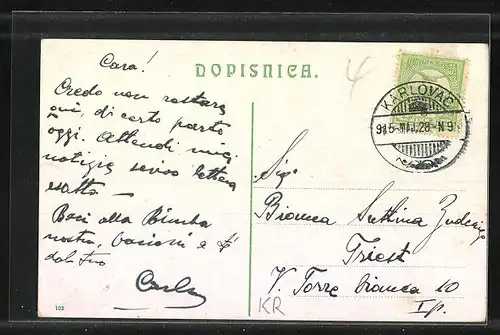 DOPISNICA.
Cara!
Credo non restare
qui, di certo parto
oggi. Attendi miei
notizie scivo lettera
esatto —
Baci alla Bimba
nostra, bacioni a te
dal tuo
Carlo
KARLOVAC
915 MAJ. 28 - N 9
Sig.
Bianca
Triest
V. Torre bianca 10
Ip.
KR
102
4